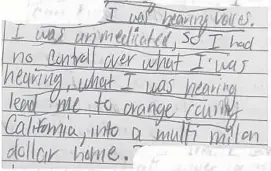 I was hearing voices.
I was unmedicated, so I had
no control over what I was
hearing, what I was hearing
lead me to orange county
California, into a multi milon
dollar home.